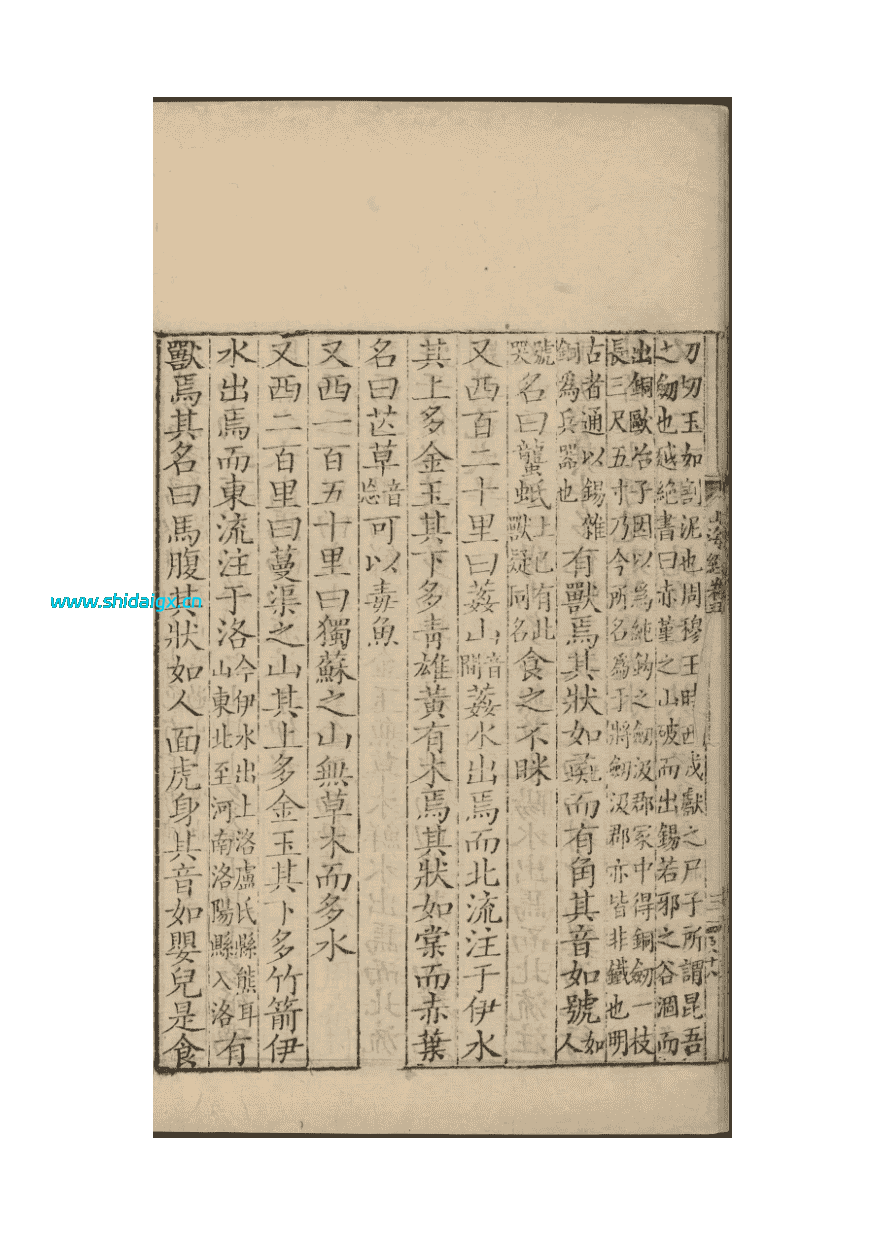 刀切玉如割泥也周穆王時西戎獻之尸子所謂昆吾
之劒也越絕書曰赤堇之山破而出錫若邪之谷涸而
出銅歐冶子因以爲純鈎之劒汲郡冢中得銅劒一枝
長三尺五寸乃今所名爲干將劒汲郡亦皆非鐵也明
古者通以錫雜
銅爲兵器也
有獸焉其狀如彘而有角其音如號
如人
號哭
名曰蠪蚳
上已有此
獸疑同名
食之不眯
又西百二十里曰葌山
音間
葌水出焉而北流注于伊水
其上多金玉其下多青雄黃有木焉其狀如棠而赤葉
名曰芒草
音忘
可以毒魚
又西一百五十里曰獨蘇之山無草木而多水
又西二百里曰蔓渠之山其上多金玉其下多竹箭伊
水出焉而東流注于洛
今伊水出上洛盧氏縣熊耳
山東北至河南洛陽縣入洛
有
獸焉其名曰馬腹其狀如人面虎身其音如嬰兒是食
山海經卷五
www.shidaigx.cn